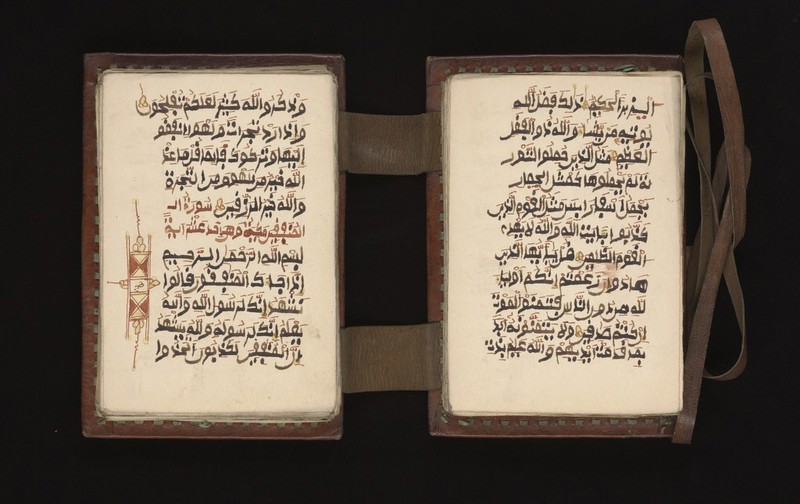 العزيز الحكيم ذلك فضل الله
يوتيه من يشاء والله ذو الفضل
العظيم مثل الذين حملوا التورية
ثم لم يحملوها كمثل الحمار
يحمل أسفارا بيس مثل القوم الذين
كذبوا بئايت الله والله لا يهدي
القوم الظلمين قل يأيها الذين
هادوا إن زعمتم أنكم أولياء
لله من دون الناس فتمنوا الموت
إن كنتم صدقين ولا يتمنونه أبدا
بما قدمت أيديهم والله عليم
واذكروا الله كثيرا لعلكم تفلحون
وإذا رأوا تجرة أو لهوا انفضوا
إليها وتركوك قايما قل ما عند
الله خير من اللهو ومن التجرة
والله خير الرزقين سورة
المنفقين وهي عشر آية
بسم الله الرحمن الرحيم
إذا جاءك المنفقون قالوا
نشهد إنك لرسول الله والله
يعلم إنك لرسوله والله يشهد
إن المنفقين لكذبون اتخذوا